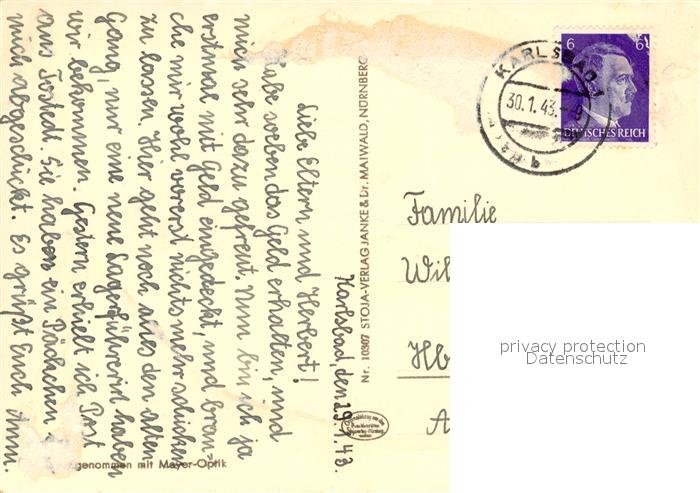 Karlsbad, den 29.1.43.
Liebe Eltern, und Herbert!
Habe soeben das Geld erhalten, und
mich sehr dazu gefreut. Nun bin ich ja
erstmal mit Geld eingedeckt, und brau-
che mir wohl vorerst nichts mehr schicken
zu lassen. Hier geht noch alles den alten
Gang, nur eine neue Lagerführerin haben
wir bekommen. Gestern erhielt ich Post
aus Tostedt. Sie haben ein Päckchen
mich abgeschickt. Es grüßt Euch Anni.
genommen mit Meyer-Optik
Nr. 10307 STOJA-VERLAG JANKE & Dr. MAIWALD, NÜRNBERG
KARLSBAD 1
30.1.43.
b
6 6
DEUTSCHES REICH
Familie
Wil
Hb
A
privacy protection
Datenschutz